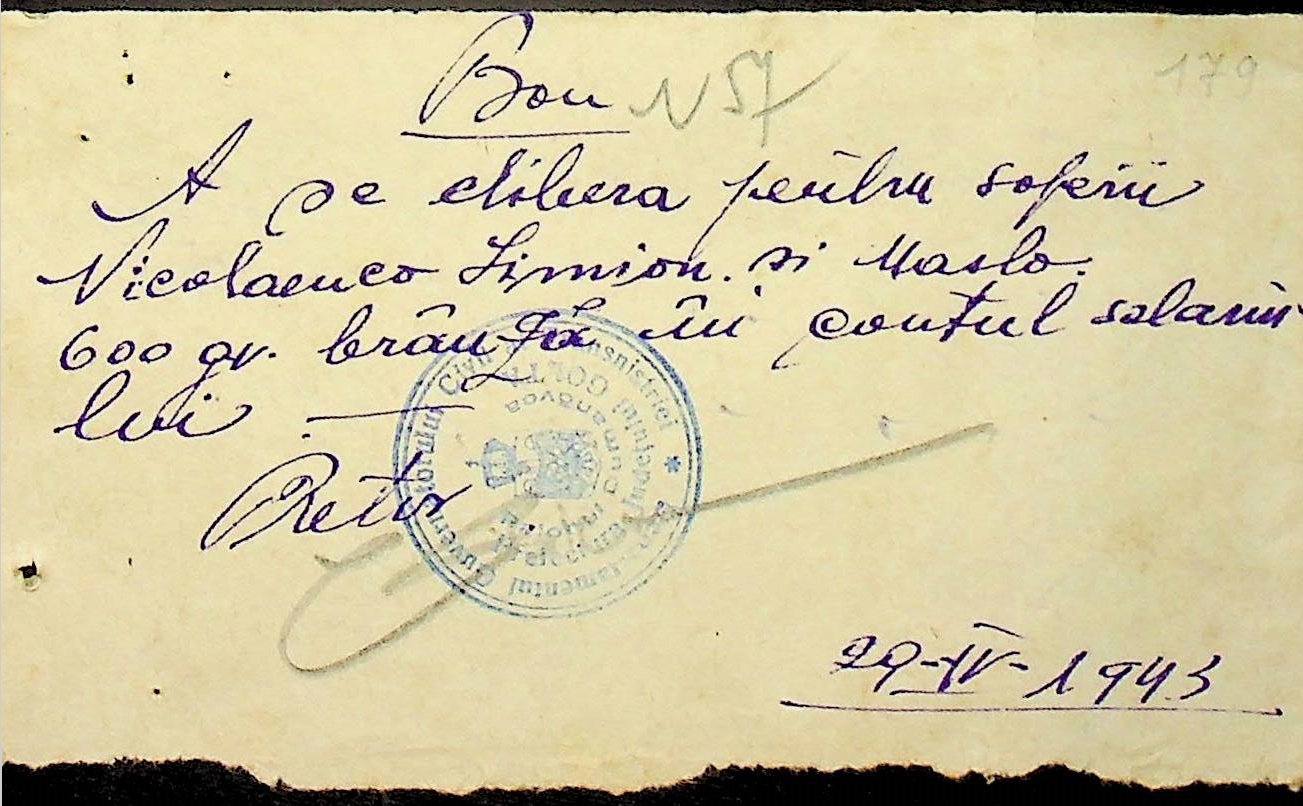 Bon N 57
179
A se elibera pentru soferii
Nicolaenco Simion. si Maslo.
600 gr. brânză în contul salariu
lui —
Pretor
Guvernatorul Civil al Transnistriei *
Prefectura Judeţului GOLTA
Raionul Dumanovca
29-IV-1943